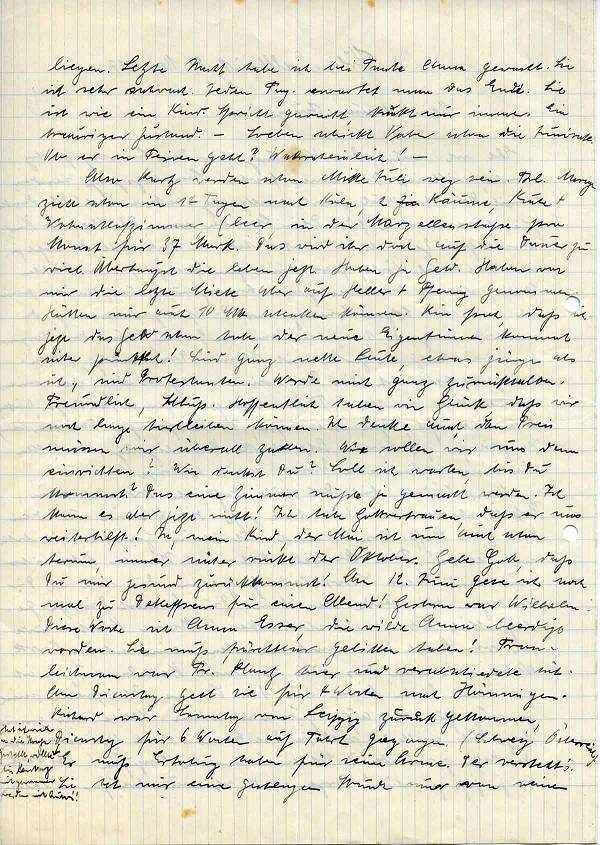 liegen. Letzte Nacht habe ich bei Tante Anna gewacht. Sie
ist sehr schwach. Jeden Tag erwartet man das Ende. Sie
ist wie ein Kind. Spricht garnicht, nur immer. Ein
trauriger Zustand. – Soeben schickt Vater schon die
Ob er in Ferien geht? Wahrscheinlich! –
Also Kurtz werden schon Mitte Juli weg sein. Frl.
zieht schon in 14 Tagen nach Köln, 2 Räume, Küche +
Wohnschlafzimmer (leer) in der Marzellenstraße pro
Monat für 37 Mark. Das wird ihr doch auf die Dauer zu
viel. Überhaupt die leben jetzt. Haben ja Geld. Haben von
mir die letzte Miete aber auf Heller + Pfennig genommen.
Hätten mir auch 10 Mk schenken können. Bin froh, daß ich
jetzt das Geld schon habe, der neue Eigentümer kommt
! Sind ganz nette Leute, etwas jünger als
ich, sind Protestanten. Werde mich ganz zurückhalten.
Freundlich, Schluß. Hoffentlich haben wir Glück, daß wir
noch lange hierbleiben können. Ich denke auch, den Preis
müssen wir überall zahlen. Wie wollen wir uns denn
einrichten? Wie denkst Du? Soll ich warten, bis Du
kommst? Das eine Zimmer müßte ja gemacht werden. Ich
kann es aber jetzt nicht! Ich habe Gottvertrauen, daß er uns
weiterhilft! Ja, mein Kind, der Mai ist nun auch schon
herum, immer näher rückt der Oktober. Gebe Gott, daß
Du mir gesund zurückkommst! Am 12. Juni gehe ich noch
mal zu für einen Abend! Gestern war Wilhelm
Diese Woche ist Anna Esser, die wilde Anna beerdigt
worden. Sie muß furchtbar gelitten haben! Fron-
leichnam war Fr. hier und verabschiedete sich.
Am Dienstag geht sie für 4 Wochen nach Hönningen.
Richard war Sonntag von Leipzig zurück gekommen,
Dienstag für 6 Wochen auf Fahrt gegangen. (Schweiz Österreich)
Er muß Erholung haben für seine Arme. Der versteht's.
Sie hat mir eine gestrichen Stunde nur von seinen